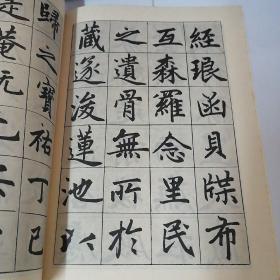 經琅函貝牒布
互森羅念里民
之遺骨無所於
藏遂浚蓮池以
歸之寶祐丁巳
菴元